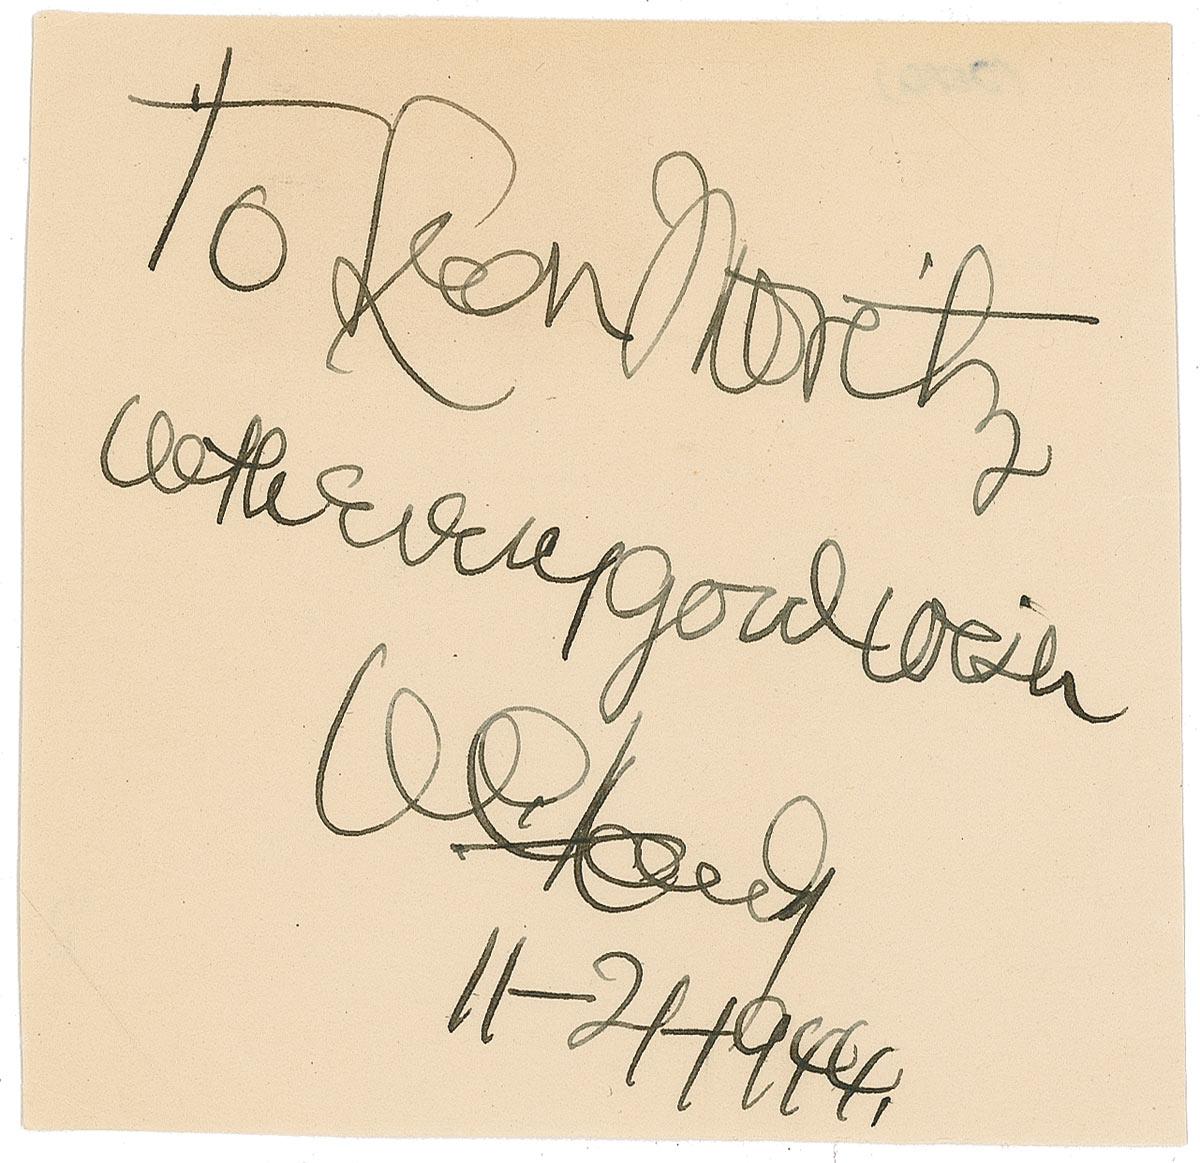 To Leon Moritz
with every good wish
WC Handy
11-21-1944.